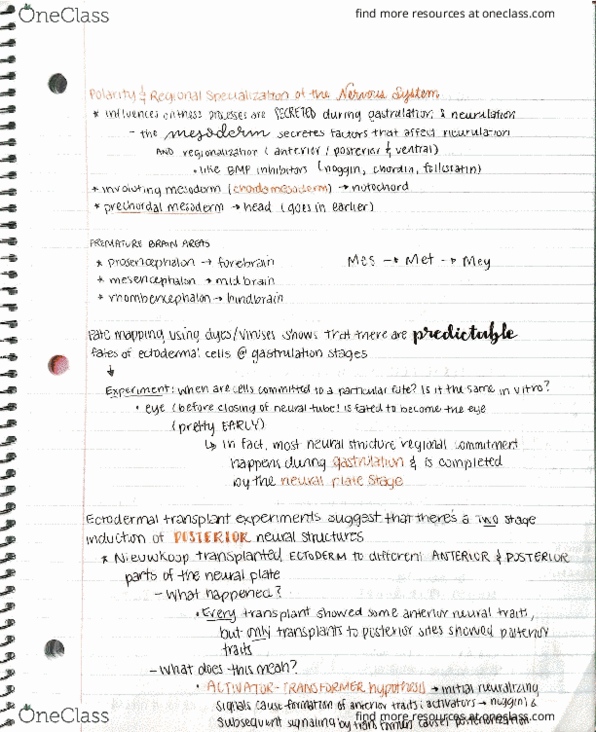 OneClass
find more resources at oneclass.com
Polarity & Regional Specialization of the Nervous System
* influences on these processes are SECRETED during gastrulation & neurulation
- the mesoderm secretes factors that affect neurulation
AND regionalization (anterior/posterior & ventral)
• like BMP inhibitors (noggin, chordin, follistatin)
* involuting mesoderm (chordamesoderm) → notochord
* prechordal mesoderm → head (goes in earlier)
PREMATURE BRAIN AREAS
* prosencephalon → forebrain
Mes → Met → Mey
* mesencephalon → midbrain
* rhombencephalon → hindbrain
Fate mapping using dyes/viruses shows that there are predictable
fates of ectodermal cells @ gastrulation stages
↓
Experiment: When are cells committed to a particular fate? Is it the same in vitro?
• eye (before closing of neural tube) is fated to become the eye
(pretty EARLY)
↳ in fact, most neural structure regional commitment
happens during gastrulation & is completed
by the neural plate stage
Ectodermal transplant experiments suggest that there's a two stage
induction of POSTERIOR neural structures
* Nieuwkoop transplanted ECTODERM to different ANTERIOR & POSTERIOR
parts of the neural plate
- What happened?
• Every transplant showed some anterior neural traits,
but only transplants to posterior sites showed posterior
traits
- What does this mean?
• ACTIVATOR-TRANSFORMER hypothesis → initial neuralizing
signals cause formation of anterior traits (activators → noggin) &
subsequent signaling by transformers causes posteriorization
OneClass
find more resources at oneclass.com